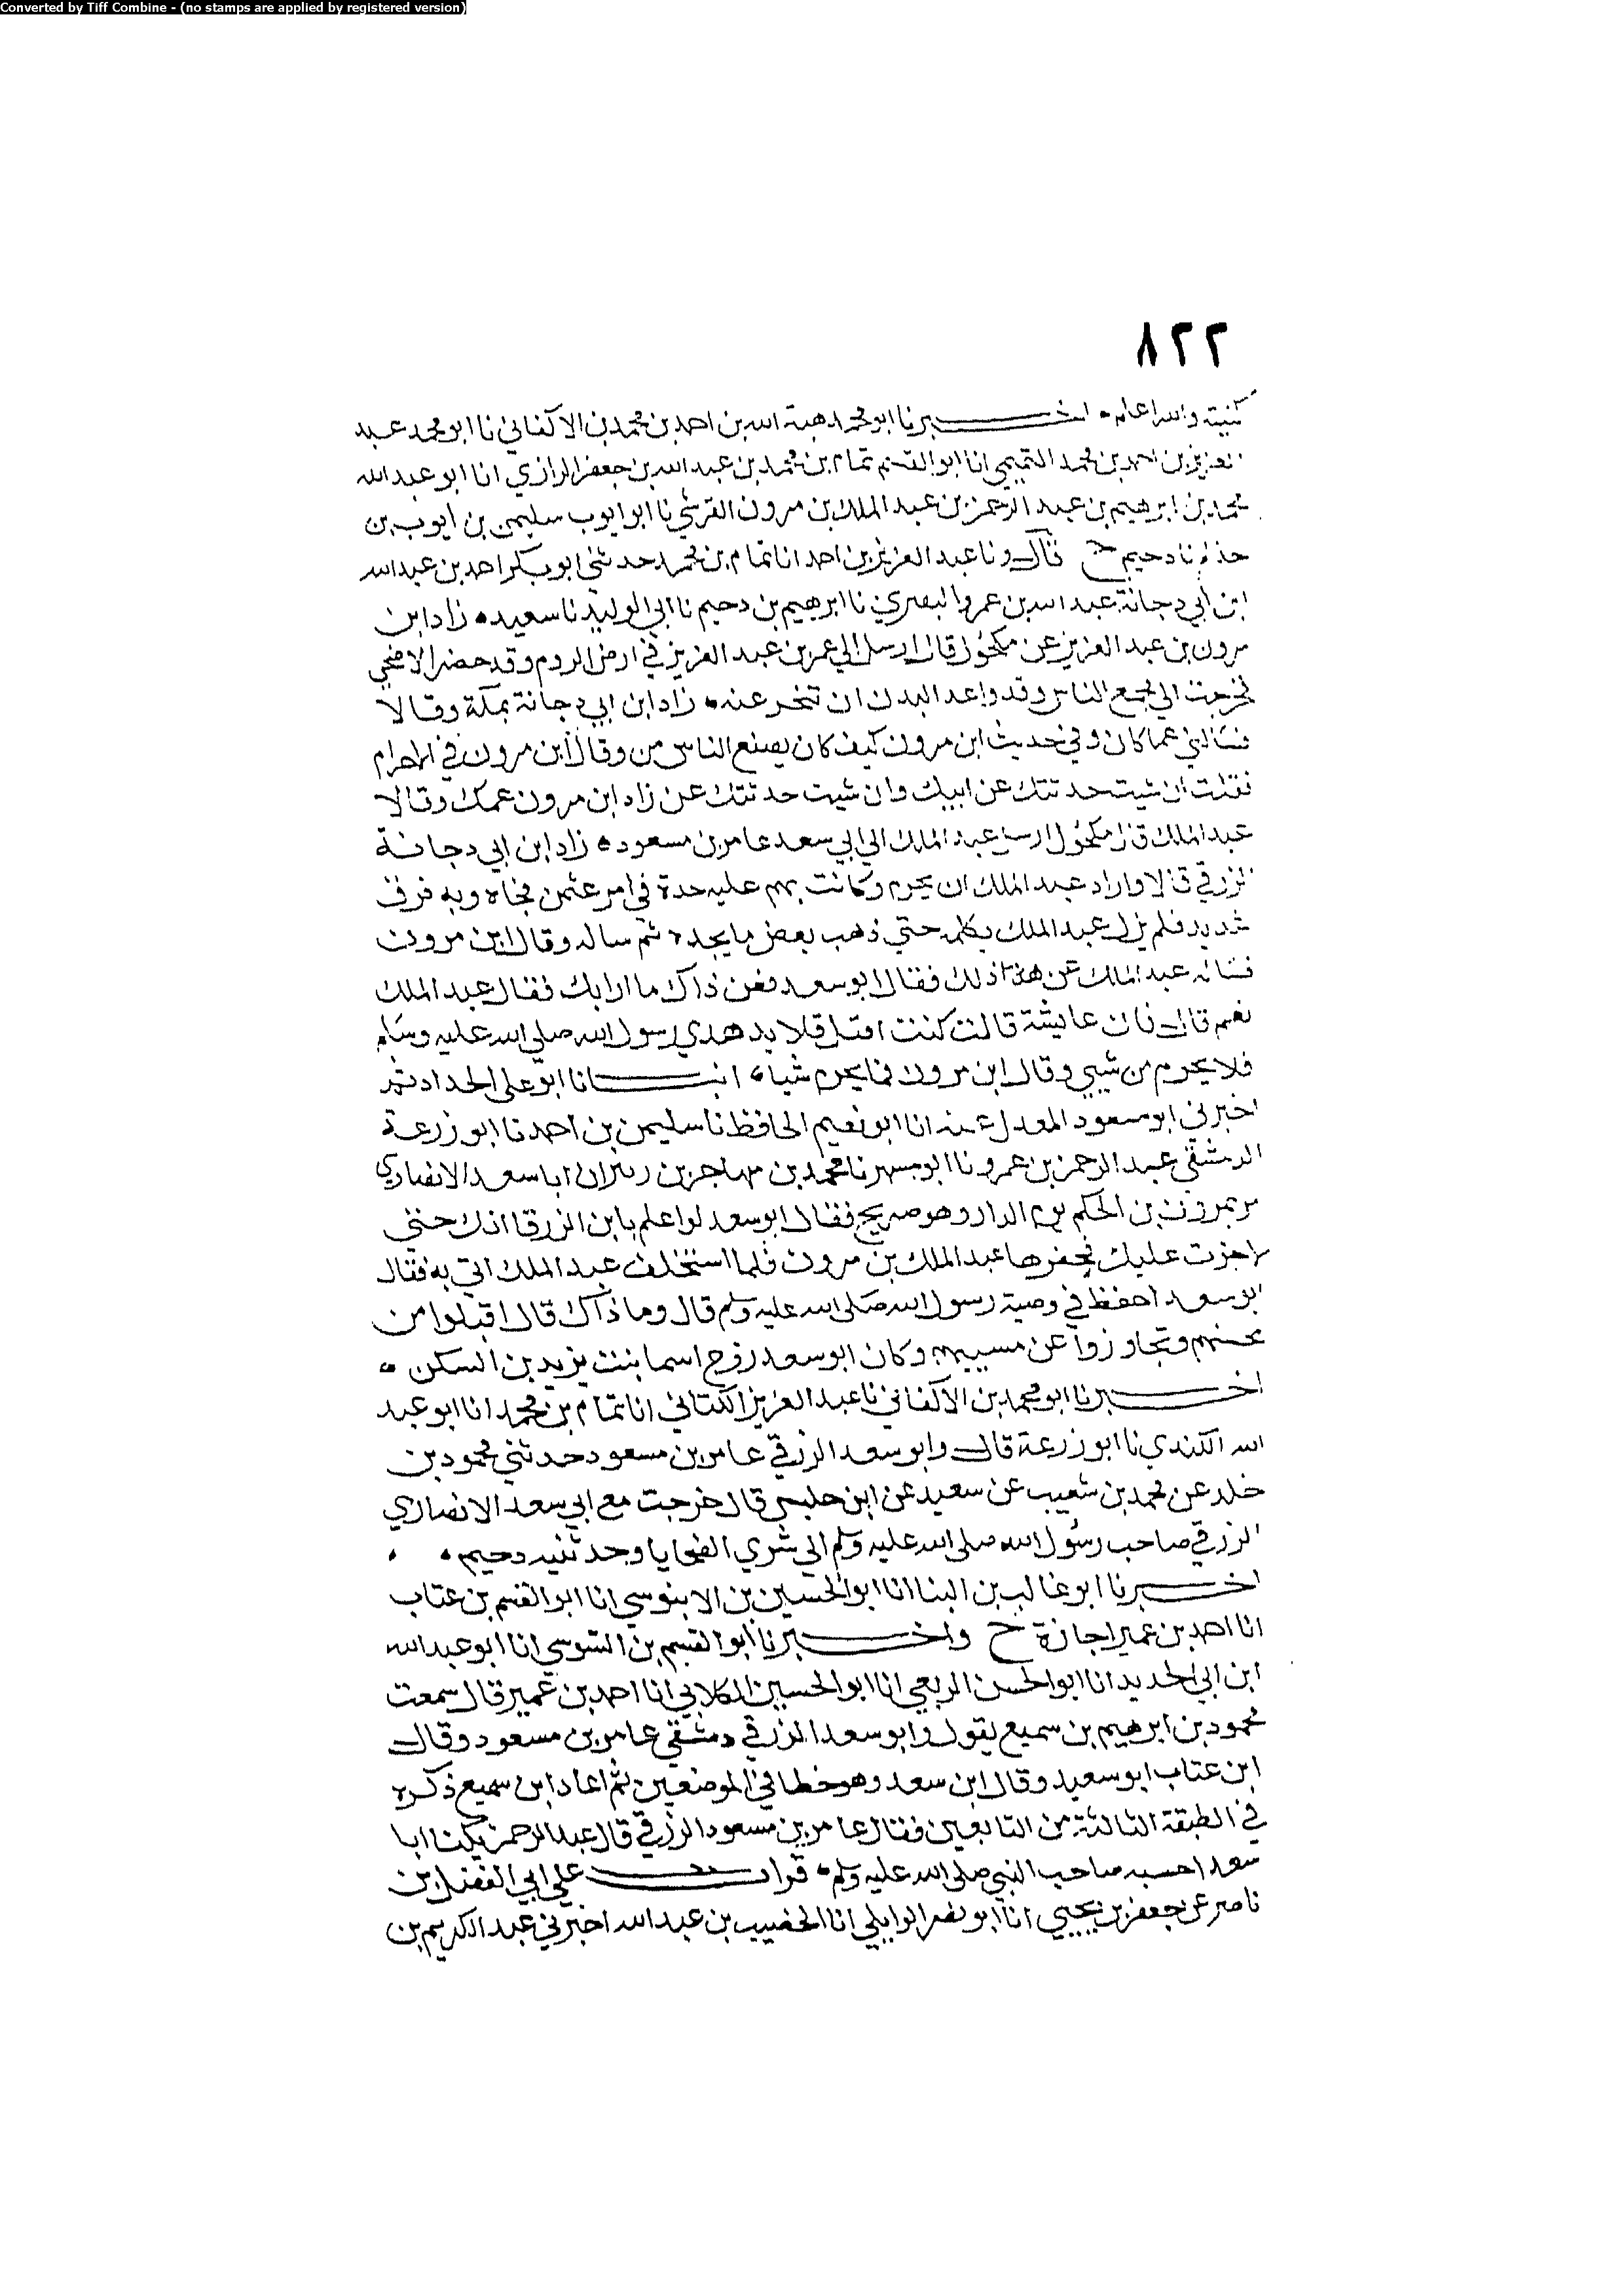 Converted by Tiff Combine - (no stamps are applied by registered version)
٨٢٢
كنيته والله اعلم • اخبرنا ابو محمد هبة الله بن احمد بن محمد بن الاكفاني نا ابو محمد عبد
العزيز بن احمد بن محمد التميمي انا ابو القسم تمام بن محمد بن عبد الله بن جعفر الرازي انا ابو عبد الله
محمد بن ابرهيم بن عبد الرحمن بن عبد الملك بن مرون القرشي نا ابو ايوب سليمن بن ايوب بن
حذلم نا دحيم ح قال ونا عبد العزيز بن احمد انا تمام بن محمد حدثني ابو بكر احمد بن عبد الله
ابن ابي دجانة عبد الله بن عمرو البصري نا ابرهيم بن دحيم نا ابي الوليد نا سعيد • زاد ابن
مرون بن عبد العزيز عن مكحول قال ارسل الي عمر بن عبد العزيز في ارض الروم وقد حضر الاضحي
فخرجت الي مجمع الناس وقد واعد البدن ان تنحر عنه • زاد ابن ابي دجانة بمكة وقالا
فسالني عما كان وفي حديث ابن مرون كيف كان يصنع الناس من وقال ابن مرون في الاحرام
فقلت ان شيت حدثتك عن ابيك وان شيت حدثتك عن زاد ابن مرون عمك وقالا
عبد الملك قال مكحول ارسل عبد الملك الي ابي سعد عامر بن مسعود • زاد ابن ابي دجانة
الزرقي قالا واراد عبد الملك ان يحرم وكانت بهم عليه حدة في امر عثمن فجاه وبه فرق
شديد فلم يزل عبد الملك يكلمه حتي ذهب بعض ما يجد • ثم ساله وقال ابن مرون
فساله عبد الملك عن هذا ذلك فقال ابو سعد فعن ذاك ما ارابك فقال عبد الملك
نعم قال فان عايشة قالت كنت افتل قلايد هدي رسول الله صلي الله عليه وسلم
فلا يحرم من شيي وقال ابن مرون فما يحرم شيا • انبانا ابو علي الحداد ثم
اخبرني ابو مسعود المعدل عنه انا ابو نعيم الحافظ نا سليمن بن احمد نا ابو زرعة
الدمشقي عبد الرحمن بن عمرو نا ابو مسهر نا محمد بن مهاجر بن ان ابا سعد الانصاري
مر بمرون بن الحكم يوم الدار وهو صريح فقال ابو سعد لو اعلم يا بن الزرقا انك حتني
لاجزت عليك فحفرها عبد الملك بن مرون فلما استخلف عبد الملك اتي به فقال
ابو سعد احفظ في وصية رسول الله صلي الله عليه وسلم قال وما ذاك قال اقبلوا من
محسنهم وتجاوزوا عن مسييهم وكان ابو سعد زوج اسما بنت يزيد بن السكن •
اخبرنا ابو محمد بن الاكفاني نا عبد العزيز الكتاني انا تمام بن محمد انا ابو عبد
الله الكندي نا ابو زرعة قال وابو سعد الزرقي عامر بن مسعود حدثني محمود بن
خلد عن محمد بن شعيب عن سعيد عن ابن حلبس قال خرجت مع ابي سعد الانصاري
الزرقي صاحب رسول الله صلي الله عليه وسلم الي شري الضحايا وحدثنيه دحيم • •
اخبرنا ابو غالب بن البنا انا ابو الحسين بن الابنوسي انا ابو القسم بن عتاب
انا احمد بن عمير اجازة ح واخبرنا ابو القسم بن السوسي انا ابو عبد الله
ابن ابي الحديد انا ابو الحسن الربعي انا ابو الحسين الكلابي انا احمد بن عمير قال سمعت
محمود بن ابرهيم بن سميع يقول وابو سعد الزرقي دمشقي عامر بن مسعود وقال
ابن عتاب ابو سعيد وقال ابن سعد وهو خطا في الموضعين ثم اعاد ابن سميع ذكره
في الطبقة الثالثة من التابعين فقال عامر بن مسعود الزرقي قال عبد الرحمن يكنا ابا
سعد احسبه صاحب النبي صلي الله عليه وسلم • قرات علي ابي الفضل بن
ناصر عن جعفر بن يحيي انا ابو نصر الوايلي انا الخصيب بن عبد الله اخبرني عبد الكريم بن